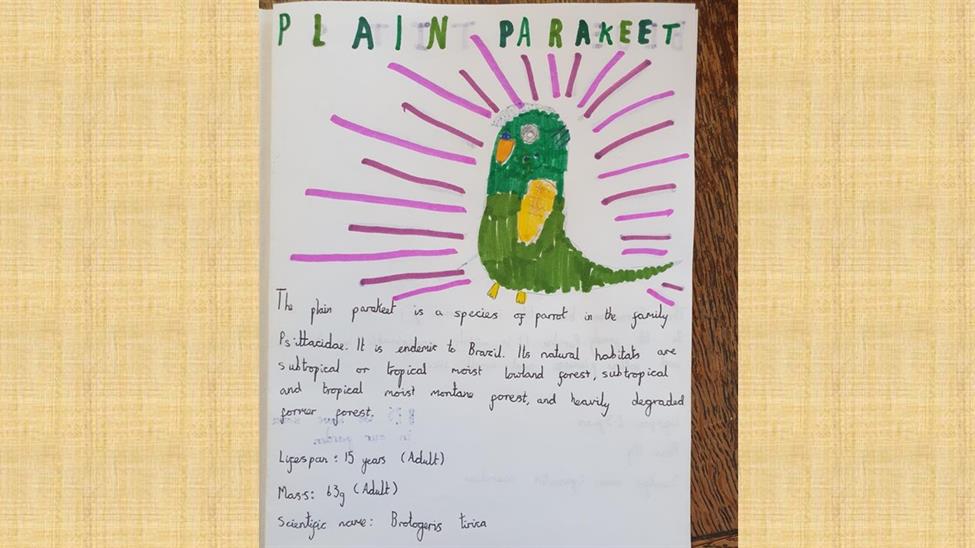 PLAIN PARAKEET
The plain parakeet is a species of parrot in the family
Psittacidae. It is endemic to Brazil. Its natural habitats are
subtropical or tropical moist lowland forest, subtropical
and tropical moist montane forest, and heavily degraded
former forest.
Lifespan: 15 years (Adult)
Mass: 63g (Adult)
Scientific name: Brotogeris tirica